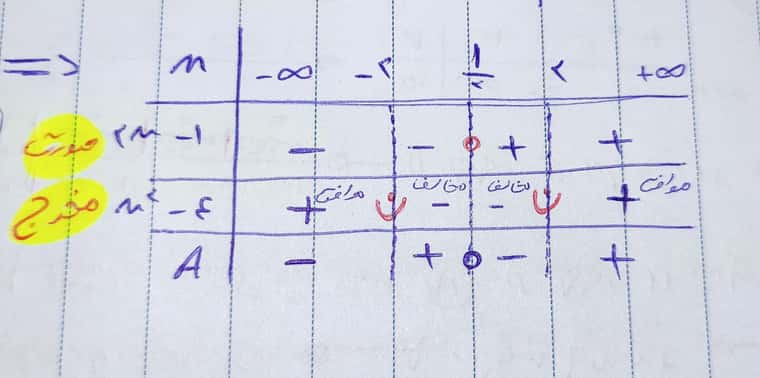 => x | -∞ -۲ ۱/۲ ۲ +∞
صورت ۲x - ۱ | - - ० + +
مخرج x² - ۴ | + موافق ن - مخالف - مخالف ن + موافق
A | - + ० - +